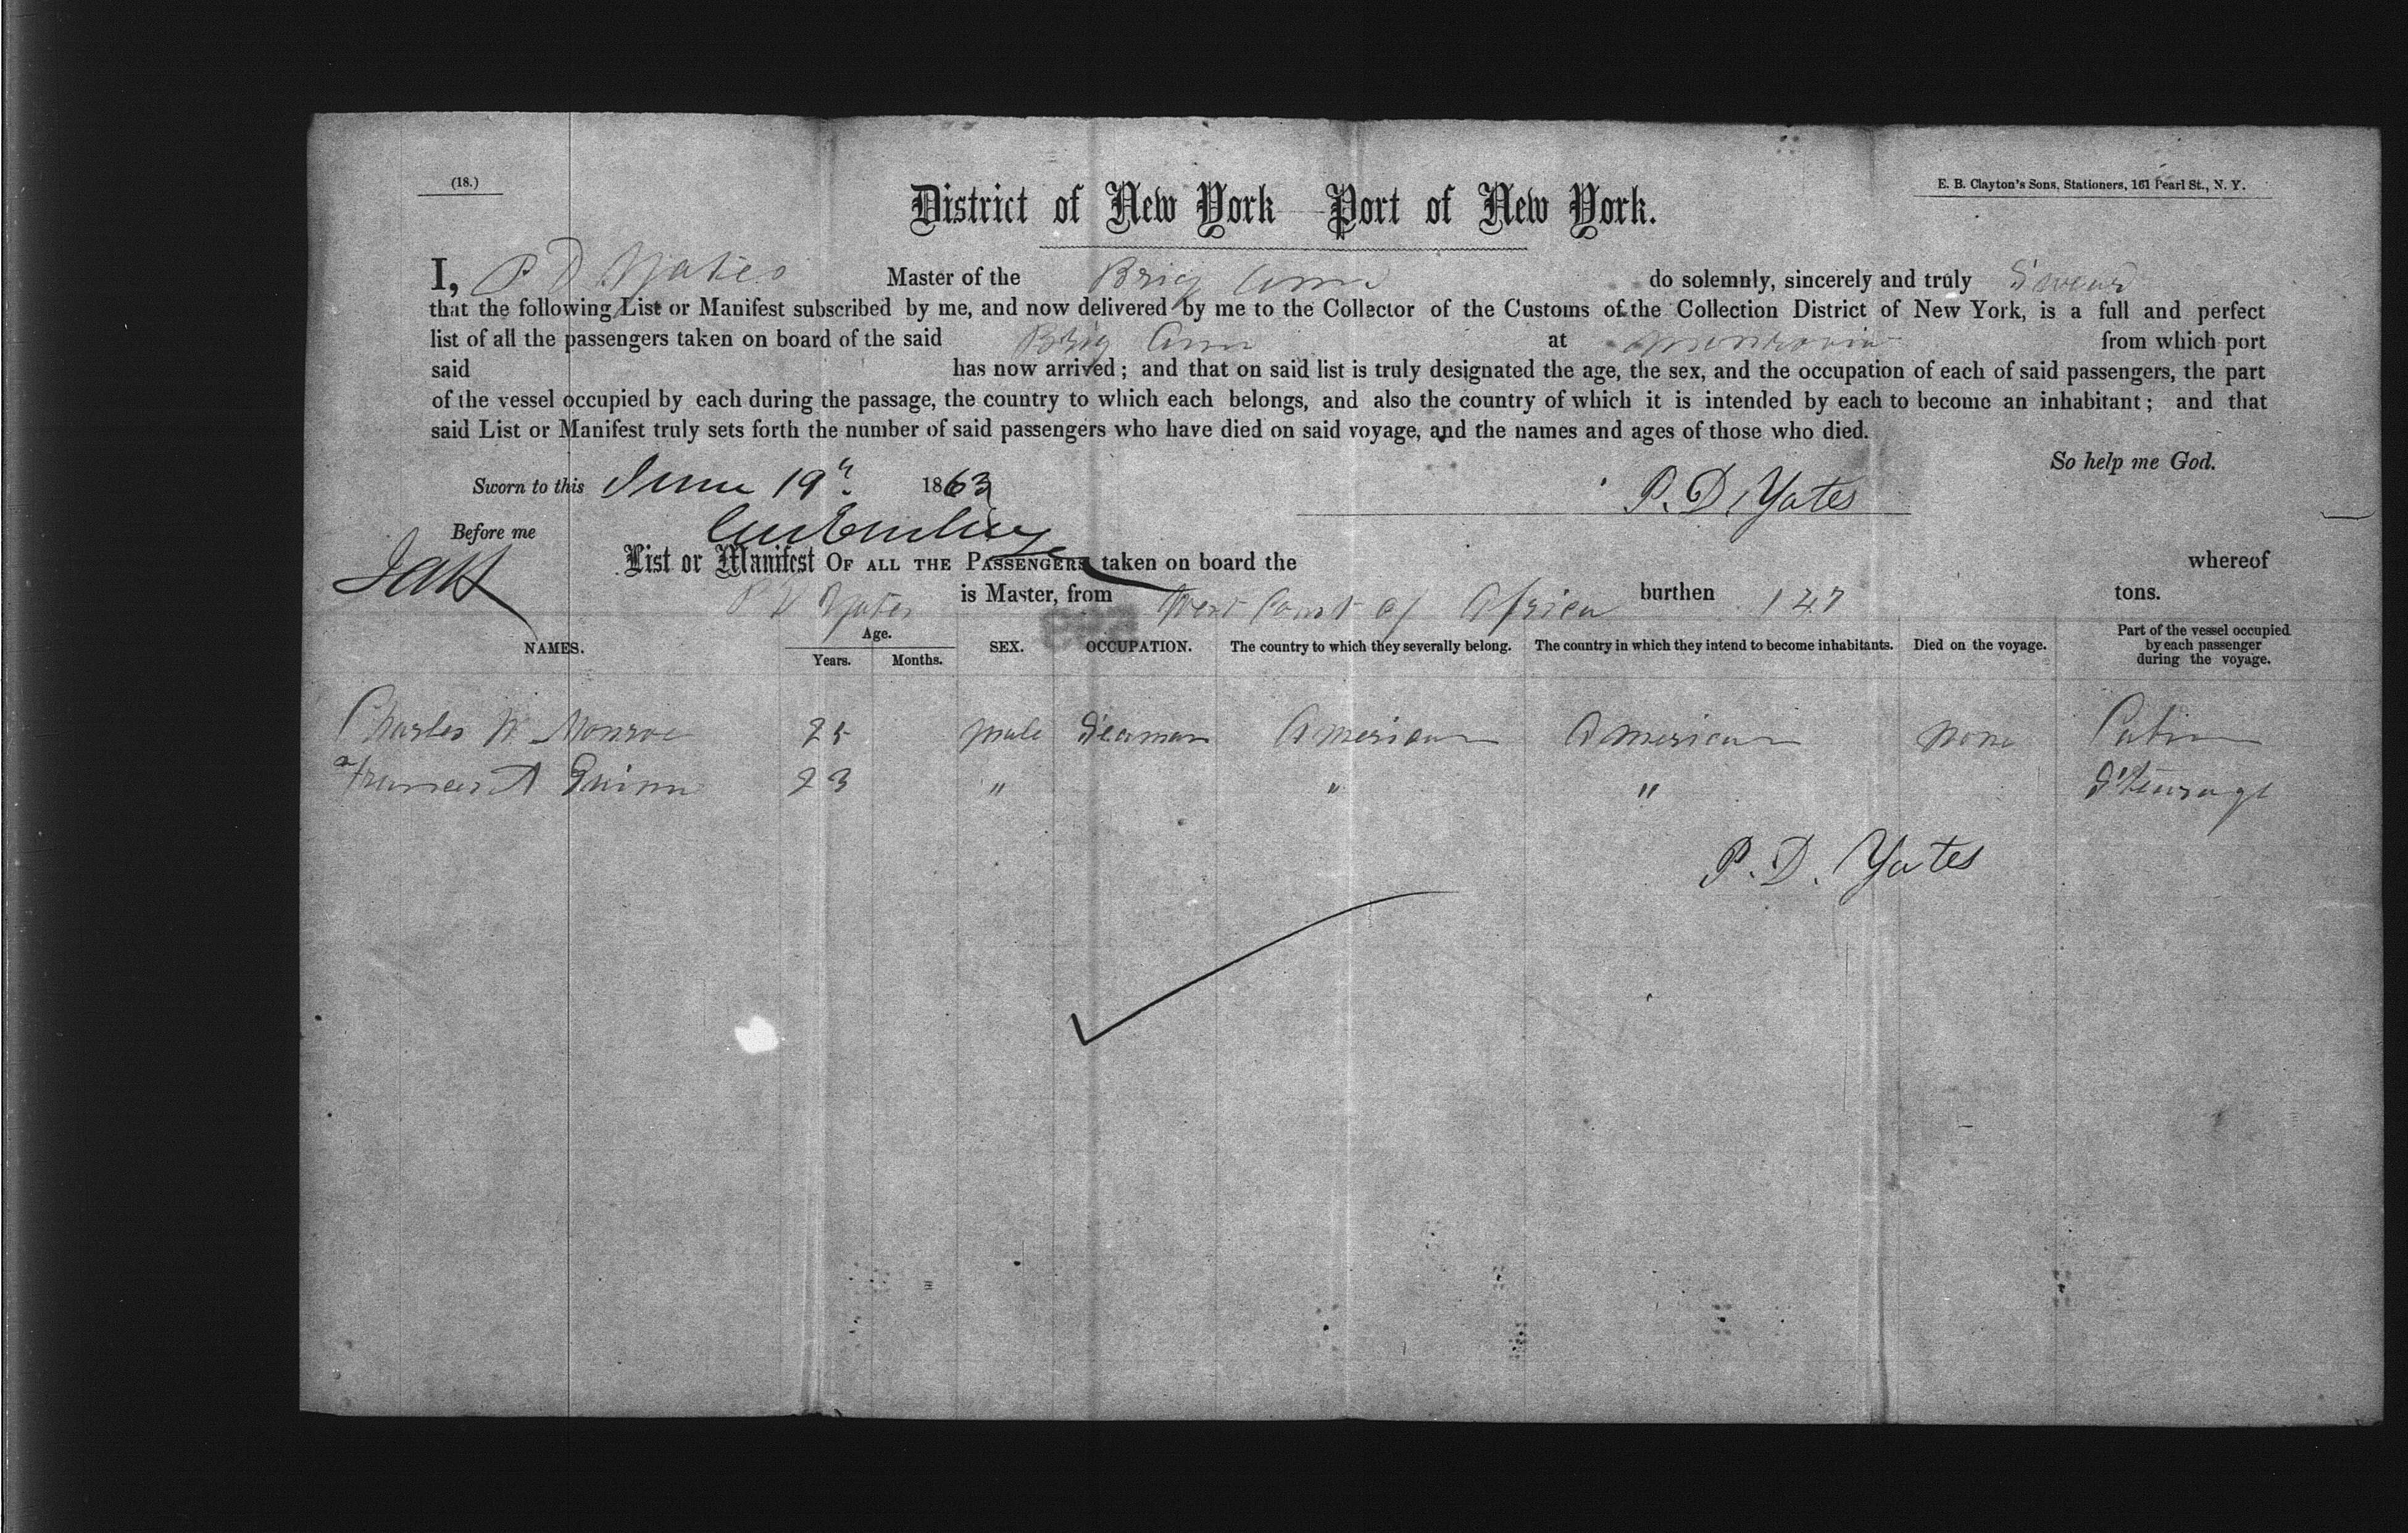 (18.)
E. B. Clayton's Sons, Stationers, 161 Pearl St., N. Y.
District of New York Port of New York.
I, P D Yates Master of the Brig Ann do solemnly, sincerely and truly Swear
that the following List or Manifest subscribed by me, and now delivered by me to the Collector of the Customs of the Collection District of New York, is a full and perfect
list of all the passengers taken on board of the said Brig Ann at Monrovia from which port
said has now arrived; and that on said list is truly designated the age, the sex, and the occupation of each of said passengers, the part
of the vessel occupied by each during the passage, the country to which each belongs, and also the country of which it is intended by each to become an inhabitant; and that
said List or Manifest truly sets forth the number of said passengers who have died on said voyage, and the names and ages of those who died.
So help me God.
Sworn to this June 19th 1863 P. D. Yates
Before me
List or Manifest OF ALL THE PASSENGERS taken on board the whereof
P D Yates is Master, from West Coast of Africa burthen 147 tons.
NAMES. Age. Years. Months. SEX. OCCUPATION. The country to which they severally belong. The country in which they intend to become inhabitants. Died on the voyage. Part of the vessel occupied by each passenger during the voyage.
Charles W Monroe 25 male Seaman American American none Cabin
Frances A Quinn 23 " " " Steurage
P. D. Yates